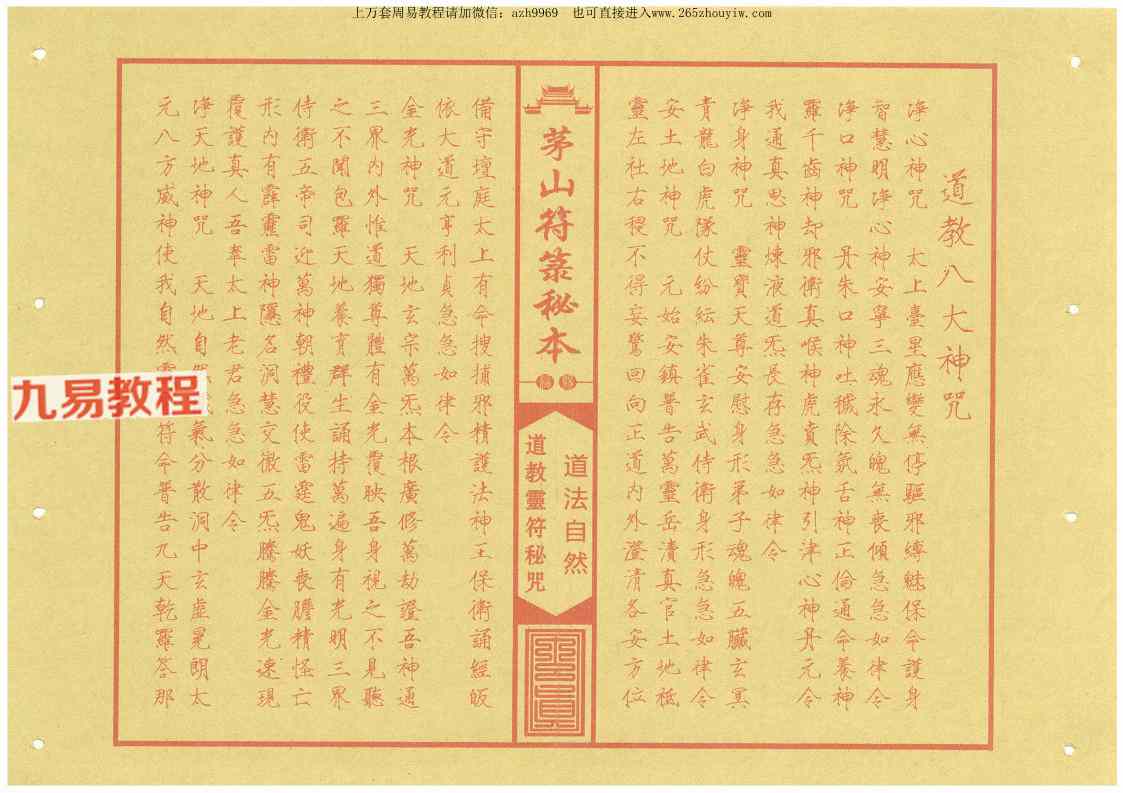 上万套周易教程请加微信：azh9969 也可直接进入www.265zhouyiw.com
道教八大神咒
淨心神咒 太上臺星應變無停驅邪縛魅保命護身
智慧明淨心神安寧三魂永久魄無喪傾急急如律令
淨口神咒 丹朱口神吐穢除氛舌神正倫通命養神
羅千齒神却邪衛真喉神虎賁炁神引津心神丹元令
我通真思神煉液道炁長存急急如律令
淨身神咒 靈寶天尊安慰身形弟子魂魄五臟玄冥
青龍白虎隊仗紛紜朱雀玄武侍衛身形急急如律令
安土地神咒 元始安鎮普告萬靈岳瀆真官土地祗
靈左社右稷不得妄驚回向正道內外澄清各安方位
茅山符箓秘本
道法自然
道教靈符秘咒
備守壇庭太上有命搜捕邪精護法神王保衛誦經皈
依大道元亨利貞急急如律令
金光神咒 天地玄宗萬炁本根廣修萬劫證吾神通
三界內外惟道獨尊體有金光覆映吾身視之不見聽
之不聞包羅天地養育群生誦持萬遍身有光明三界
侍衛五帝司迎萬神朝禮役使雷霆鬼妖喪膽精怪亡
形內有霹靂雷神隱名洞慧交徹五炁騰騰金光速現
覆護真人吾奉太上老君急急如律令
淨天地神咒 天地自 氣分散洞中玄虛晃朗太
元八方威神使我自然 符命普告九天乾羅答那
九易教程